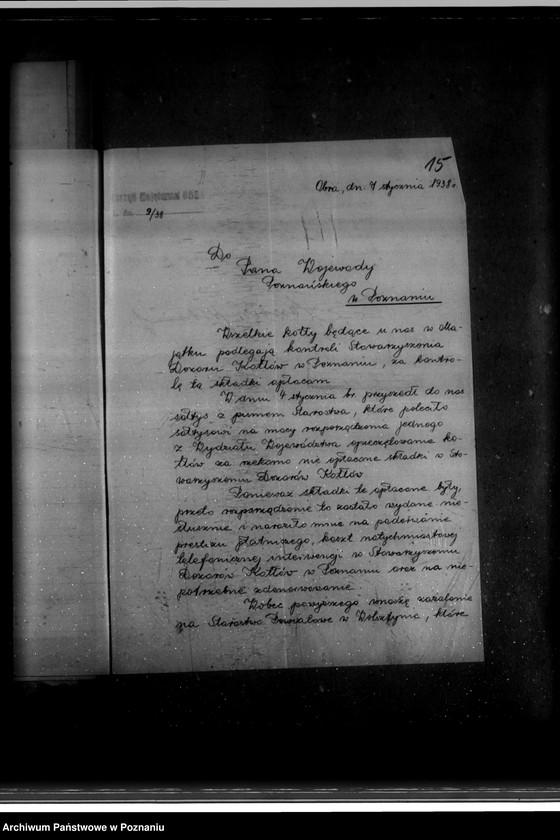 15
Obra, dn. 7 stycznia 1938 r.
9/38
Do
Pana Wojewody
Poznańskiego
w Poznaniu
Wszelkie kotły będące u nas w Ma-
jątku podlegają kontroli Stowarzyszenia
Dozoru Kotłów w Poznaniu, za kontro-
lę tą składki opłacam.
W dniu 4 stycznia br. przyszedł do nas
sołtys z pismem Starostwa, które poleciło
sołtysowi na mocy rozporządzenia jednego
z Wydziału Województwa opieczętowanie ko-
tłów za rzekomo nie opłacone składki w Sto-
warzyszeniu Dozorów Kotłów.
Ponieważ składki te opłacone były,
przeto rozporządzenie to zostało wydane nie-
słusznie i naraziło mnie na poderwanie
prestiżu płatniczego, koszt natychmiastowej
telefonicznej interwencji w Stowarzyszeniu
Dozorów Kotłów w Poznaniu oraz na nie-
potrzebne zdenerwowanie.
Wobec powyższego wnoszę zażalenie
na Starostwo Powiatowe w Wolsztynie, które
Archiwum Państwowe w Poznaniu